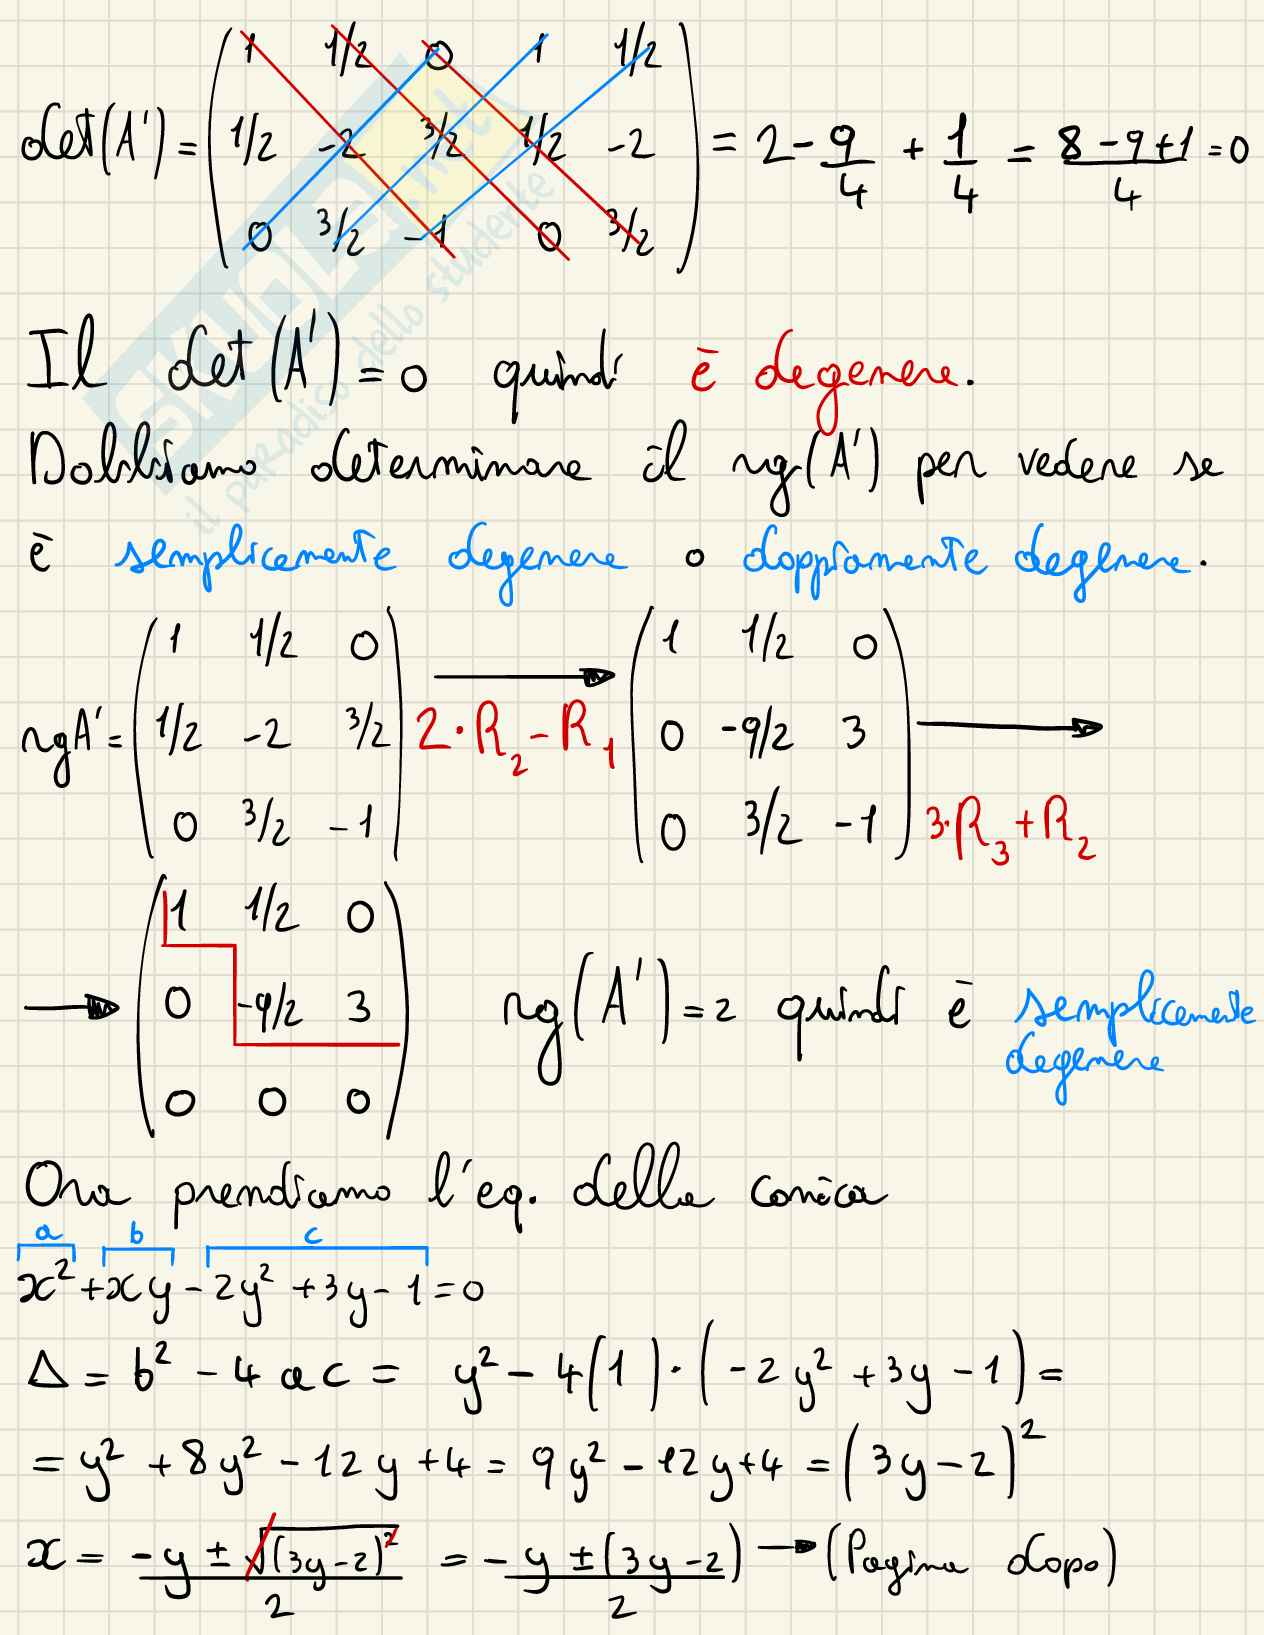 det(A') = ( 1 1/2 0 1 1/2
1/2 -2 3/2 1/2 -2
0 3/2 -1 0 3/2 ) = 2 - 9/4 + 1/4 = (8-9+1)/4 = 0
Il det(A') = 0 quindi è degenere.
Dobbiamo determinare il rg(A') per vedere se
è semplicemente degenere o doppiamente degenere.
rgA' = ( 1 1/2 0
1/2 -2 3/2
0 3/2 -1 ) → 2·R2 - R1 ( 1 1/2 0
0 -9/2 3
0 3/2 -1 ) → 3·R3 + R2
→ ( 1 1/2 0
0 -9/2 3
0 0 0 ) rg(A') = 2 quindi è semplicemente
degenere
Ora prendiamo l'eq. della conica
a b c
x² + xy - 2y² + 3y - 1 = 0
Δ = b² - 4ac = y² - 4(1)·(-2y² + 3y - 1) =
= y² + 8y² - 12y + 4 = 9y² - 12y + 4 = (3y - 2)²
x = (-y ± √(3y-2)²)/2 = (-y ± (3y-2))/2 → (Pagina dopo)
SKUOLA.net
il paradiso dello studente